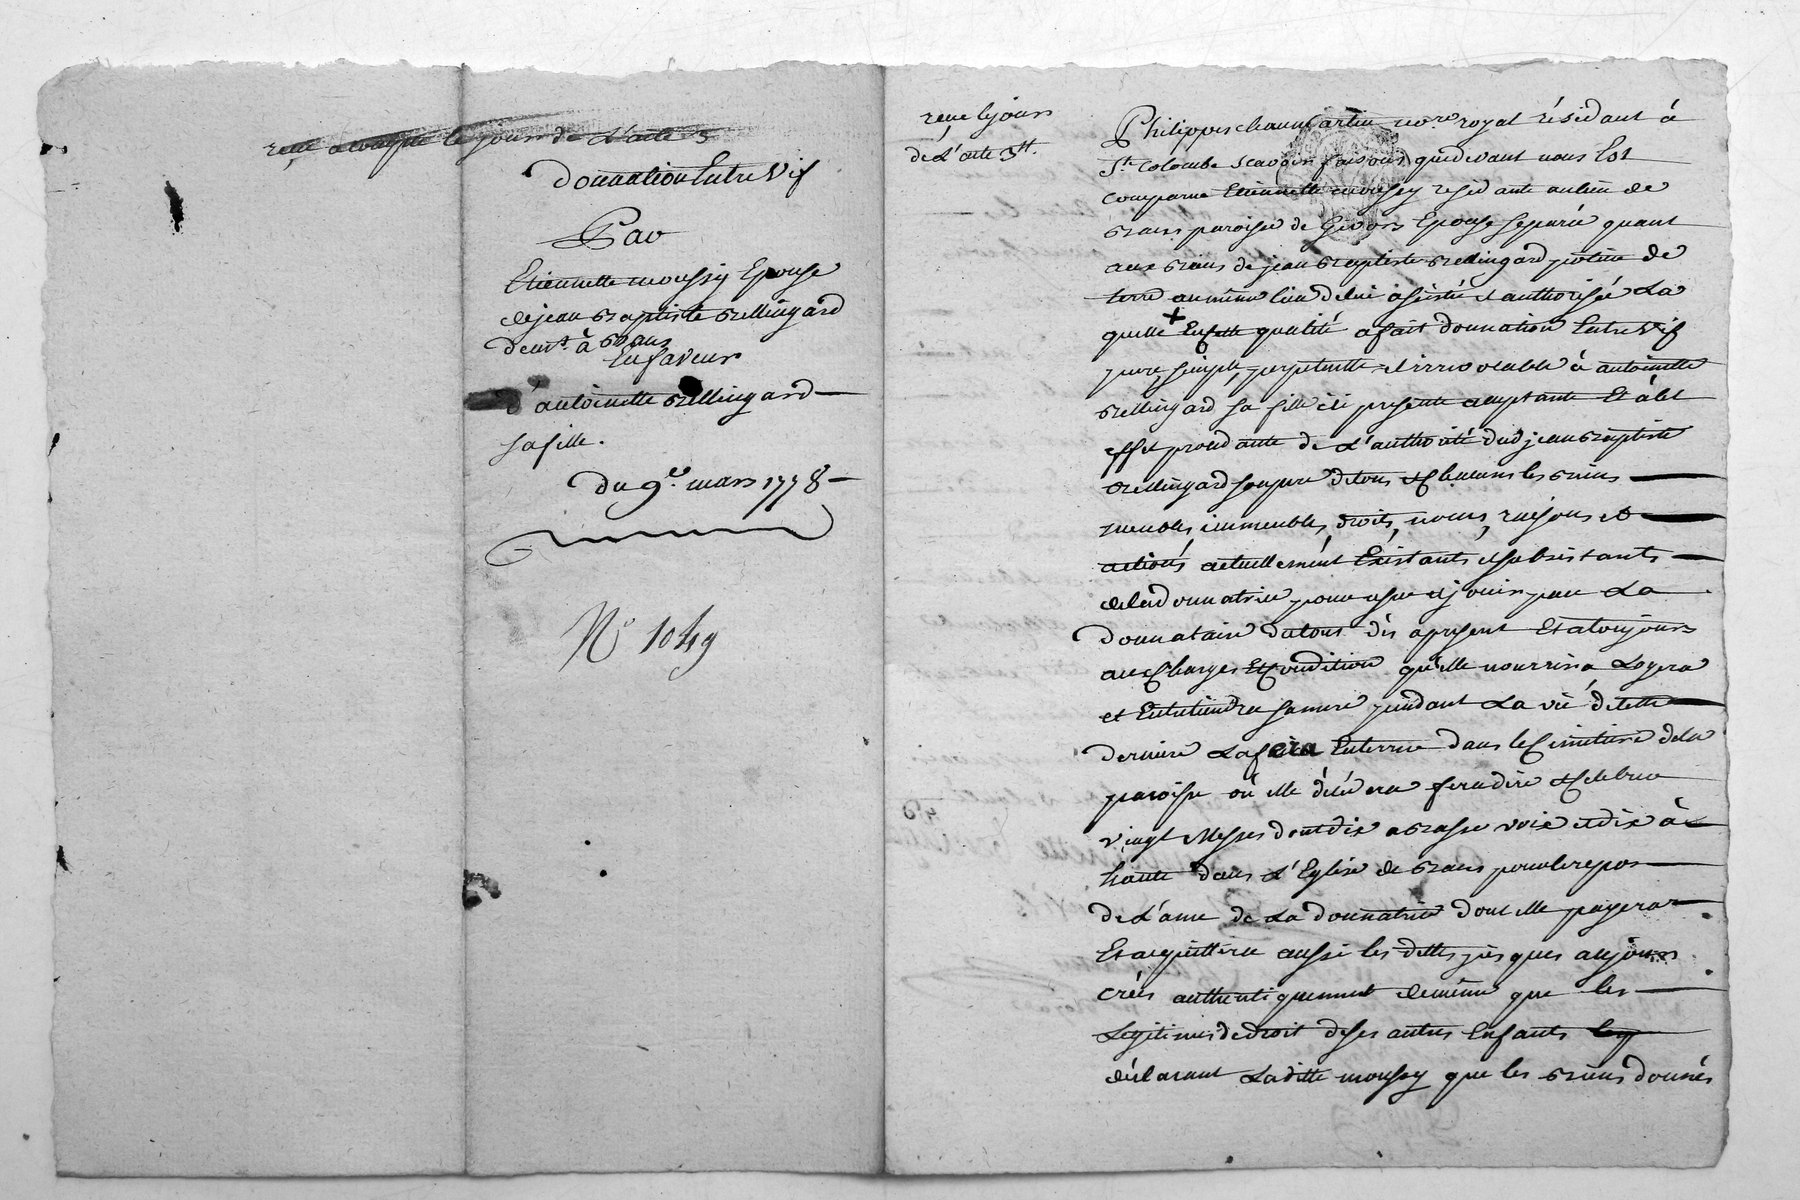 reçu acompte le jour de l'acte 3
Donnation Entre Vif
Par
Etiennette moussy Epouse
de jean Baptiste Bellingard
demt. à Bans
En faveur
d'antoinette Bellingard
sa fille.
Du 9e. mars 1778
No 1049
reçu le jour
de L'acte 3tt.
Philippes chaumartin nore royal résidant à
St. Colombe scavoir faisons que devant nous Est
comparue Etiennette moussy residante au lieu de
Bans paroisse de Givors Epouse separée quant
aux Biens de jean Baptiste Bellingard potier de
terre au même lieu de lui assistée et authorisée La
quelle + En cette qualité a fait donnation Entre Vif
pure, simple, perpetuelle et irrevocable à antoinette
Bellingard sa fille ici presente acceptante Et à cet
effet procedante de L'authorité dud jean Baptiste
Bellingard son pere de tous et Chacuns les Biens
meubles, immeubles, droits, noms, raisons et
actions, actuellement Existants et subsistants
de lad donnatrice pour user et jouir par La
donnataire du tout dès apresent Et a toujours
aux Charges Et Condition qu'elle nourrira Logera
et Entretiendra sa mere pendant La vie de cette
derniere La fera Enterrer dans le Cimetiere de la
paroisse où elle décédera fera dire et Celebrer
vingt Messes dont dix a Basse voix et dix à
haute dans L'Eglise de Bans pour le repos
de L'ame de La donnatrice dont elle payera
Et acquittera aussi les dettes jusques aujours
créés authentiquement de même que les
Legitimes de droit de ses autres Enfants
déclarant Laditte moussy que les Biens donnés